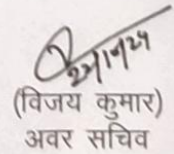 (विजय कुमार)
अवर सचिव